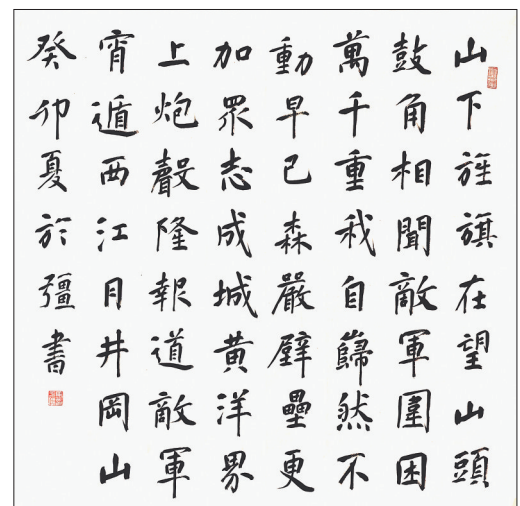 山下旌旗在望山頭
鼓角相聞敵軍圍困
萬千重我自巋然不
動早已森嚴壁壘更
加眾志成城黃洋界
上炮聲隆報道敵軍
宵遁西江月井岡山
癸卯夏於彊書